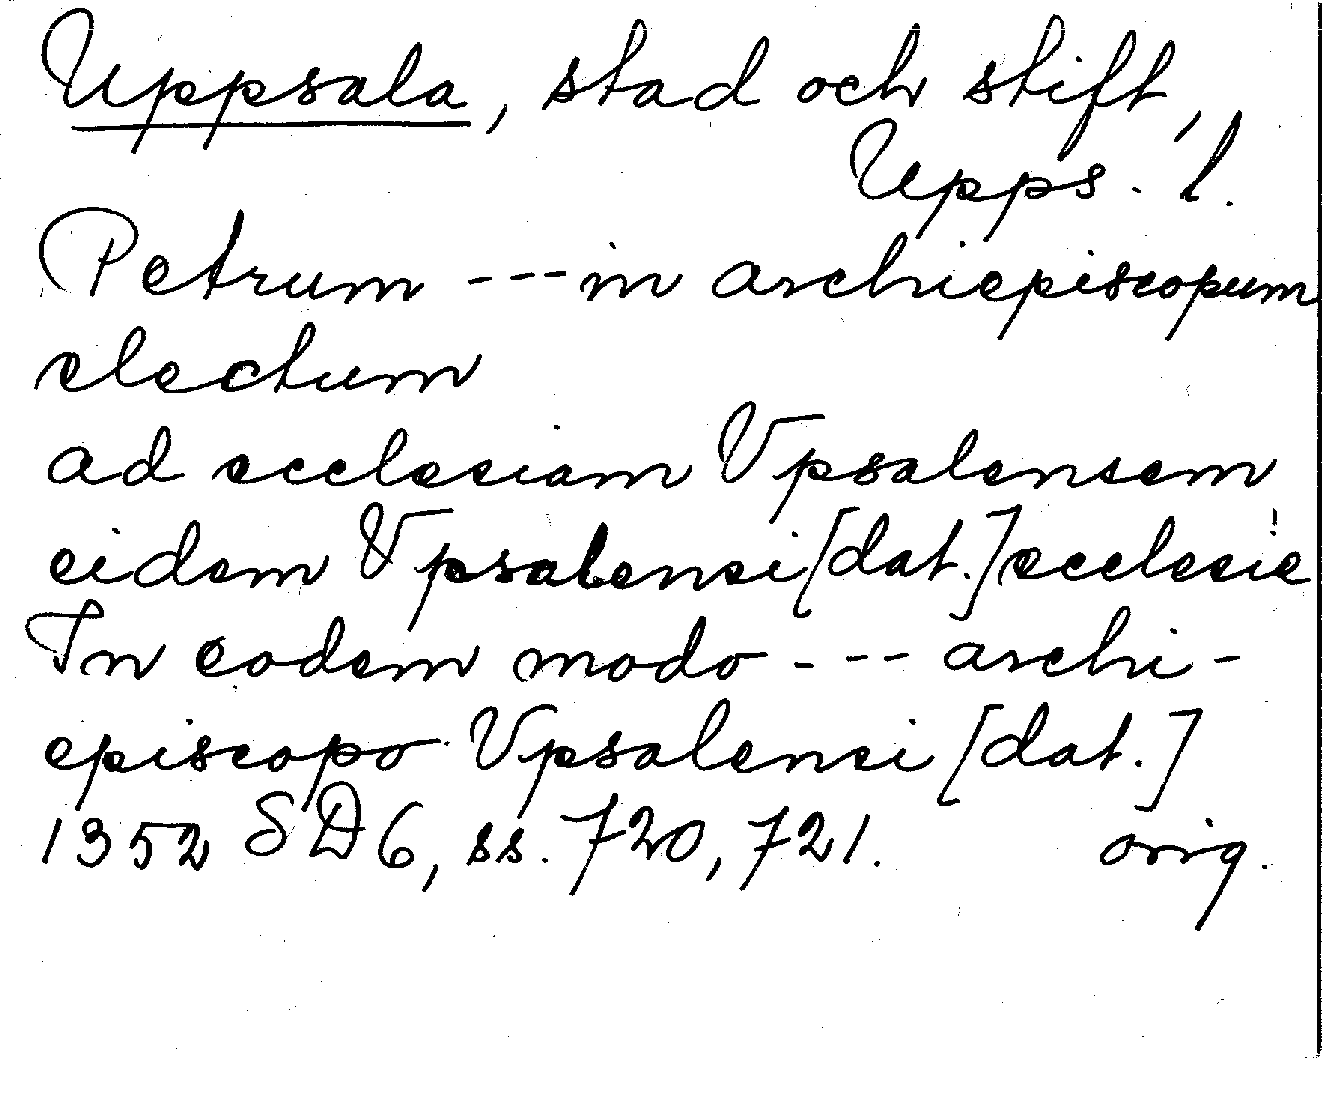 Uppsala, stad och stift,
Upps. l.
Petrum --- in archiepiscopum
electum
ad ecclesiam Vpsalensem
eidem Vpsalensi [dat.] ecclesie
In eodem modo --- archi-
episcopo Vpsalensi [dat.]
1352 SD 6, ss. 720, 721. orig.